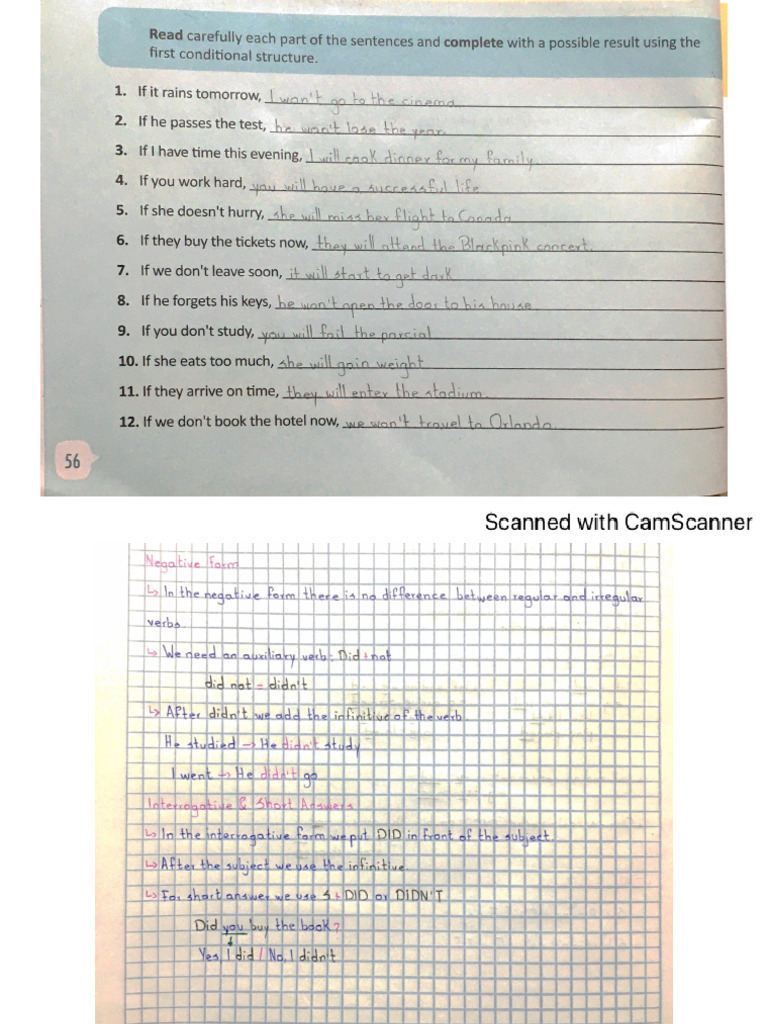 Read carefully each part of the sentences and complete with a possible result using the
first conditional structure.
1. If it rains tomorrow, I won't go to the cinema
2. If he passes the test, he won't lose the year
3. If I have time this evening, I will cook dinner for my family.
4. If you work hard, you will have a successful life
5. If she doesn't hurry, she will miss her flight to Canada
6. If they buy the tickets now, they will attend the Blackpink concert.
7. If we don't leave soon, it will start to get dark
8. If he forgets his keys, he won't open the door to his house
9. If you don't study, you will fail the parcial
10. If she eats too much, she will gain weight
11. If they arrive on time, they will enter the stadium.
12. If we don't book the hotel now, we won't travel to Orlando.
56
Scanned with CamScanner
Negative Form
↳ In the negative form there is no difference between regular and irregular
verbs
↳ We need an auxiliary verb: Did + not
did not = didn't
↳ After didn't we add the infinitive of the verb.
He studied → He didn't study
I went → He didn't go
Interrogative & Short Answers
↳ In the interrogative form we put DID in front of the subject.
↳ After the subject we use the infinitive.
↳ For short answer we use S + DID or DIDN'T
Did you buy the book?
Yes, I did / No, I didn't